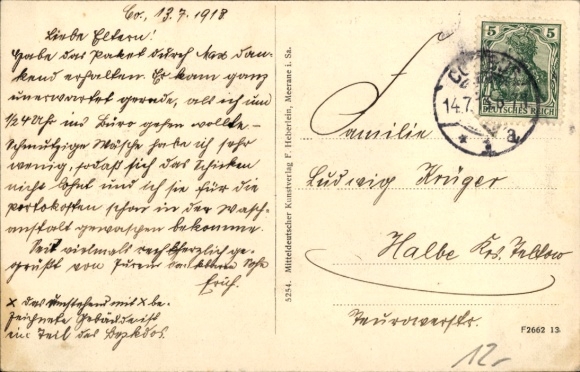 Co., 13.7.1918
Liebe Eltern!
Habe das Paket durch Max dan-
kend erhalten. Er kam ganz
unerwartet gerade, als ich um
1/24 Uhr ins Büro gehen wollte. –
Schmutzige Wäsche habe ich sehr
wenig, sodaß sich das Schicken
nicht lohnt und ich sie für die
Portokosten schon in der Wasch-
anstalt gewaschen bekomme.
Seit vielmals recht herzlich ge-
grüßt von Eurem Sohn
Erich.
x das umstehend mit x be-
zeichnete Gebäude ist
ein Teil des
5254. Mitteldeutscher Kunstverlag F. Heberlein, Meerane i. Sa.
5 5
DEUTSCHES REICH
14.7.18
* 1 a
Familie
Ludwig Krüger
Halbe Krs. Teltow
F2662 13
12.-